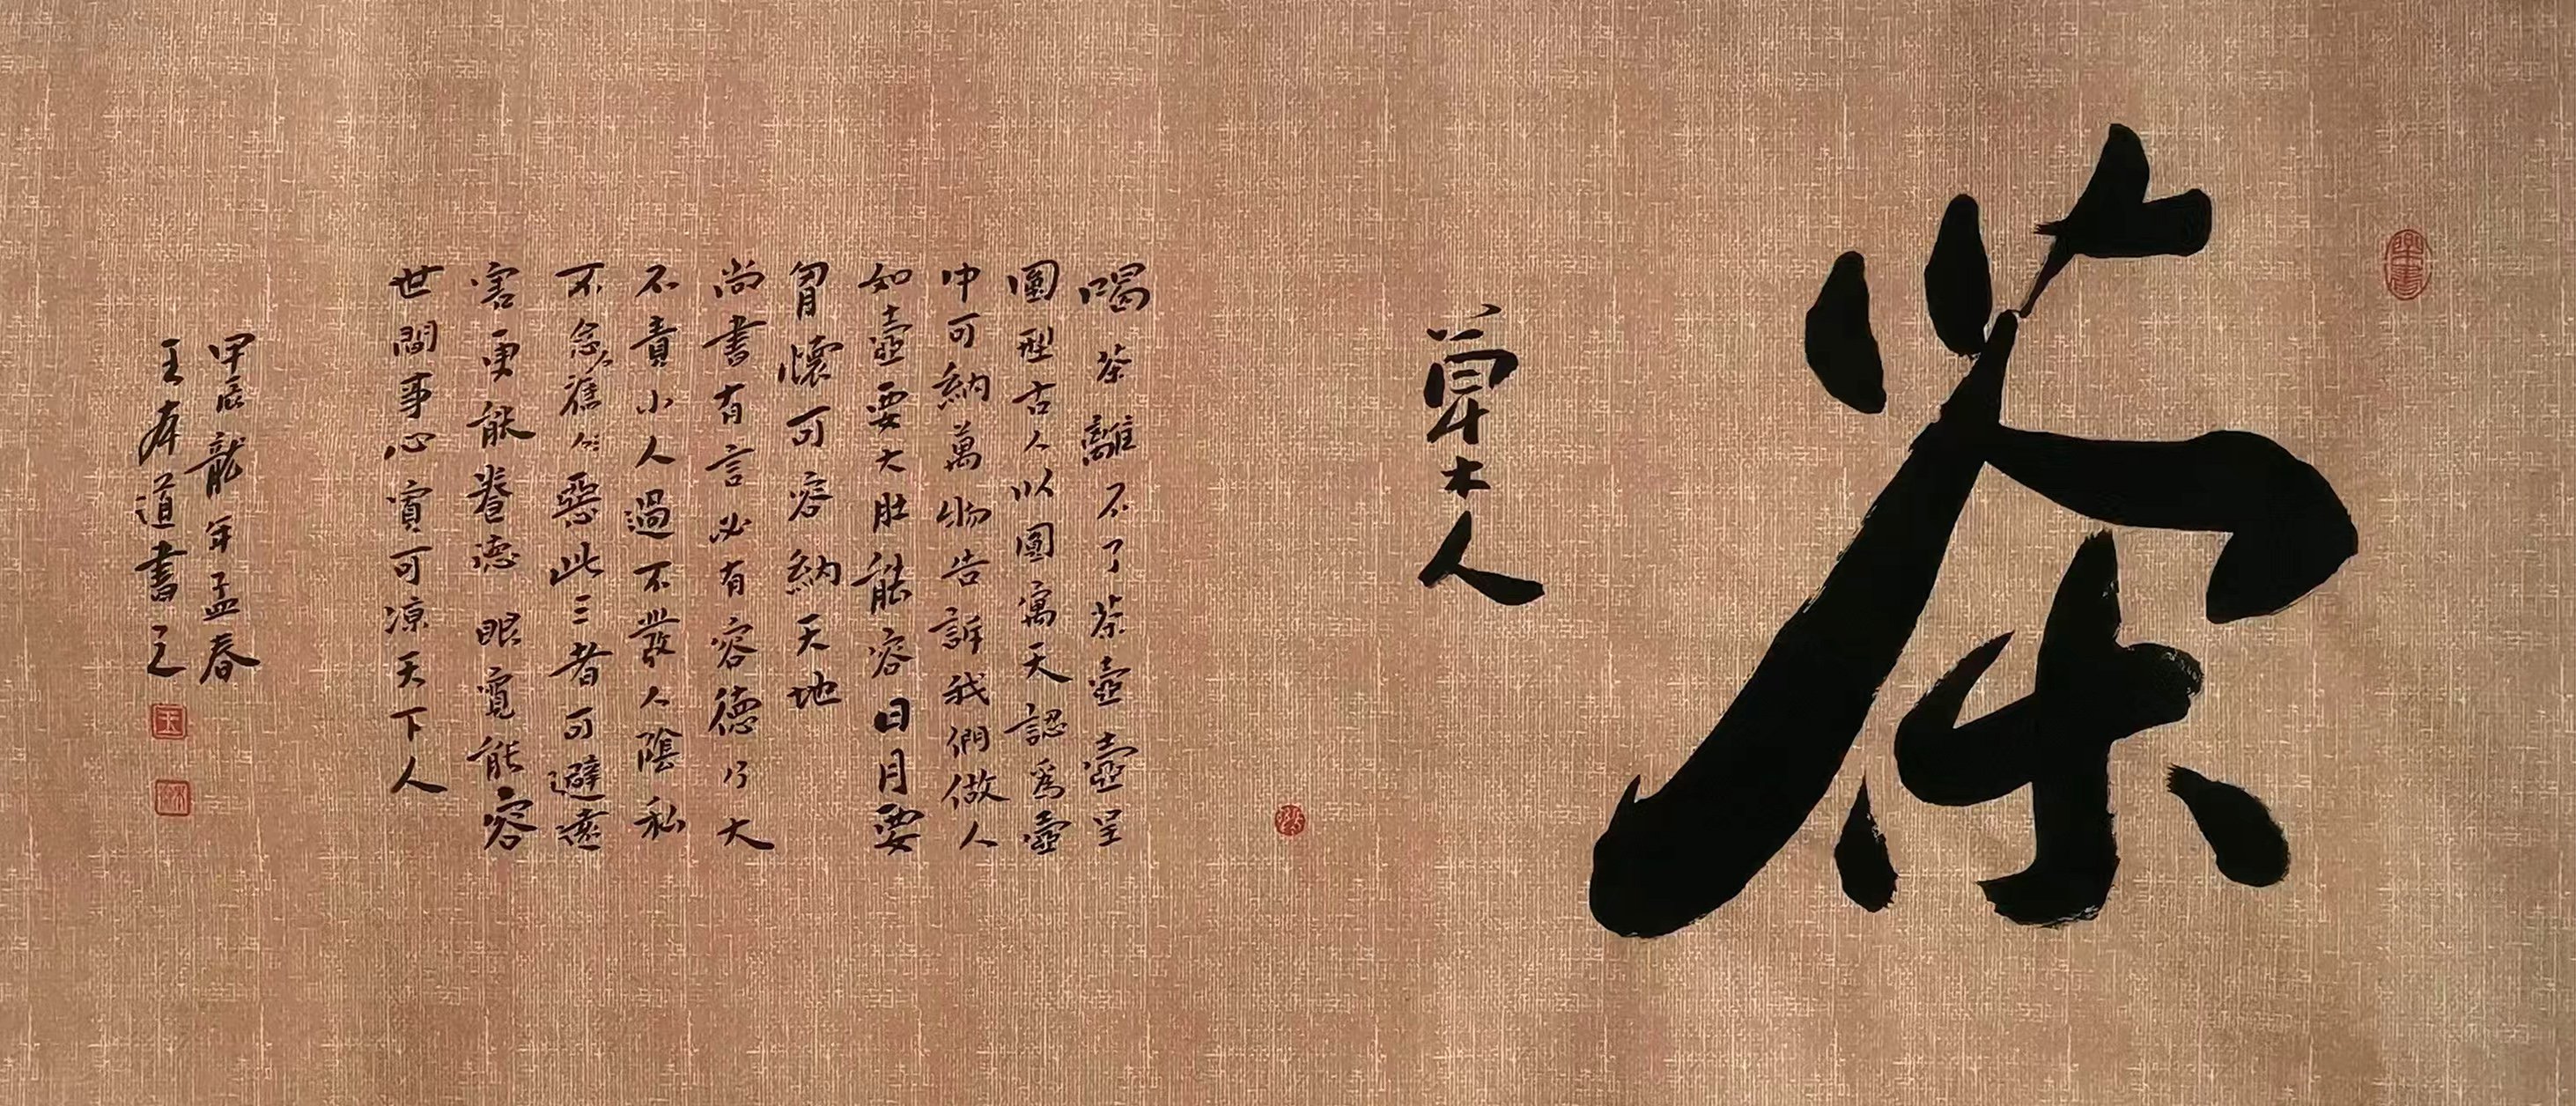 茶
草木人
喝茶離不了茶壺壺呈
圓型古人以圓寓天認爲壺
中可納萬物告訴我們做人
如壺要大肚能容日月要
胷懷可容納天地
尚書有言必有容德乃大
不責小人過不發人陰私
不念舊人惡此三者可避遠
害更能養德眼寬能容
世間事心寬可凉天下人
甲辰龍年孟春
王存道書之